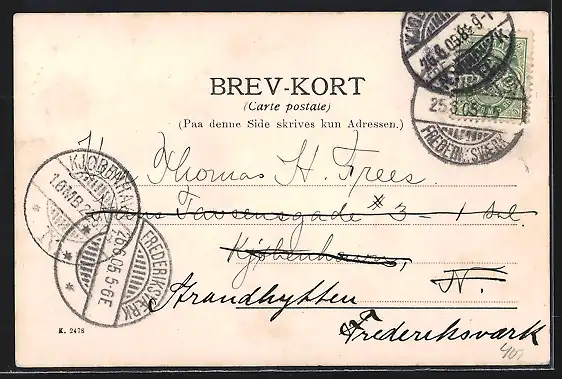 BREV-KORT
(Carte postale)
(Paa denne Side skrives kun Adressen.)
Hr. Thomas H. Frees.
Hans Tavsensgade # 3 - 1 Sal.
Kjøbenhavn,
N.
Strandhytten
Frederiksværk
K. 2478
KJØBENHAVN
1.OMB
FREDERIKSVÆRK
26.6.05.5-6E
25.6.05
FREDERIKSVÆRK
26.6.05